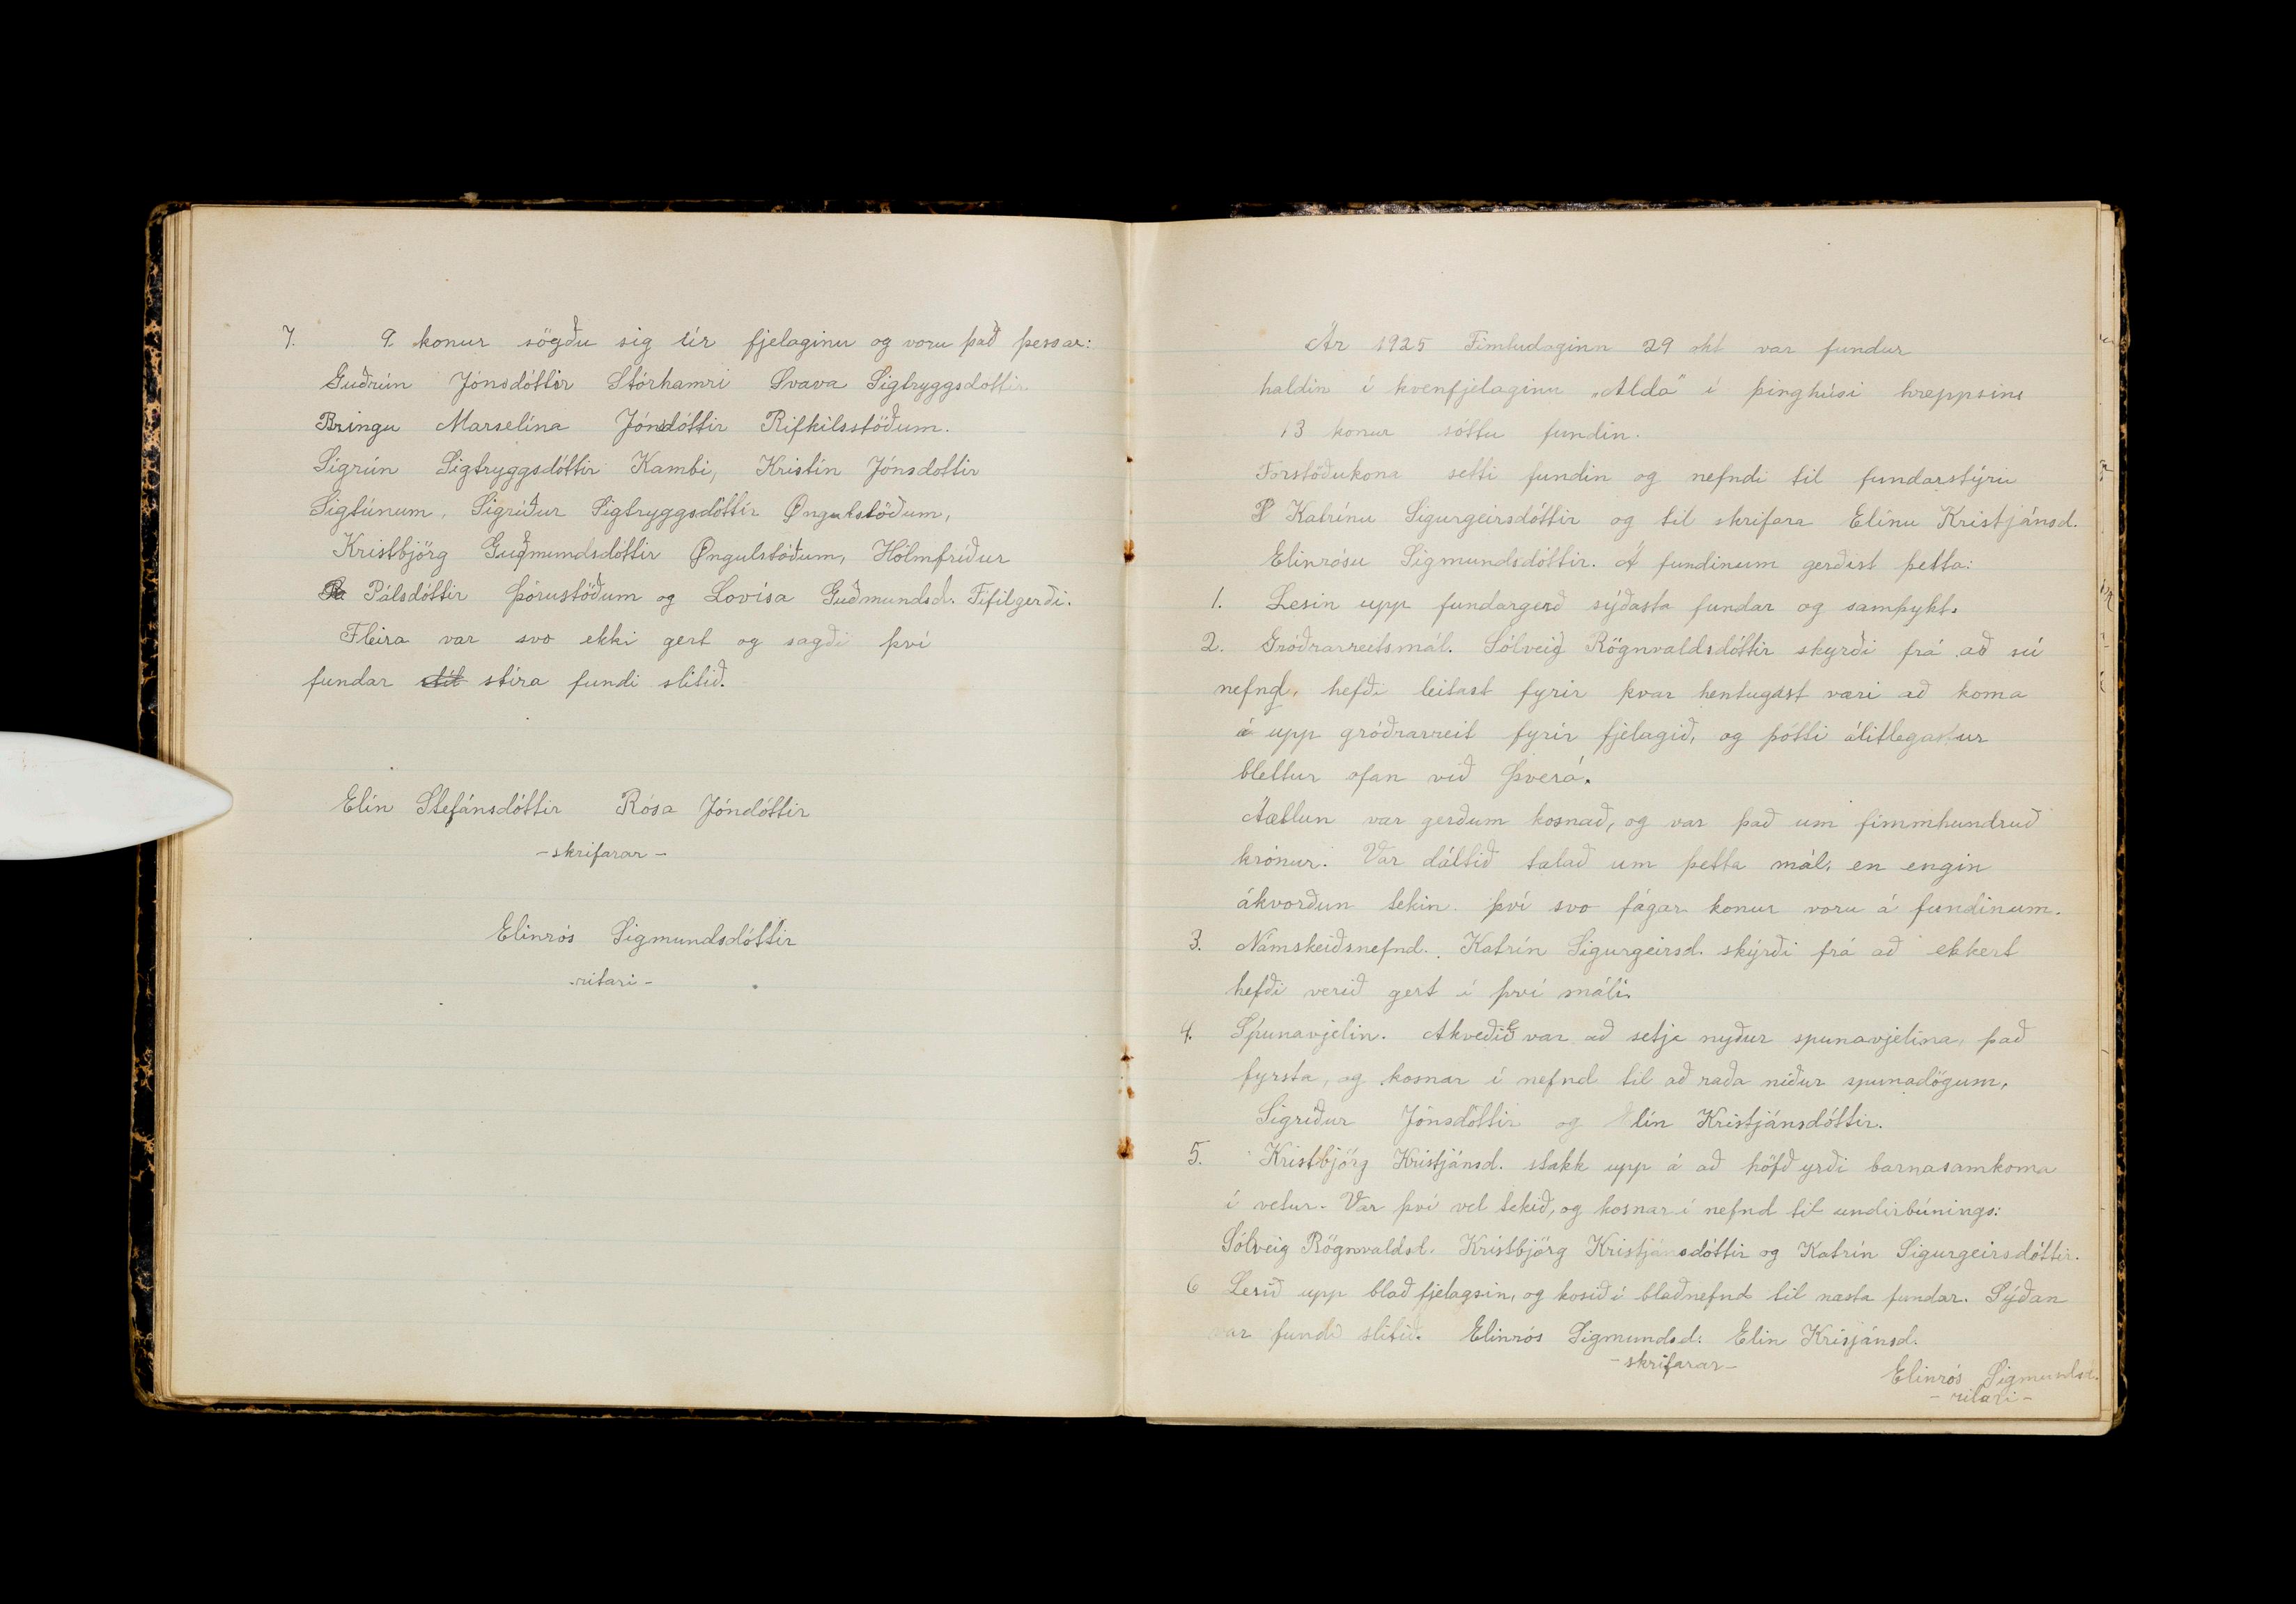 7. 9 konur sögðu sig úr fjelaginu og voru það þessar:
Guðrún Jónsdóttir Stórhamri Svava Sigtryggsdóttir
Bringu Marselína Jónsdóttir Rifkilsstöðum.
Sigrún Sigtryggsdóttir Kambi, Kristín Jónsdottir
Sigtúnum, Sigríður Sigtryggsdóttir Øngulstöðum,
Kristbjörg Guðmundsdóttir Øngulstöðum, Hólmfríður
Pálsdóttir Þórustöðum og Lovísa Guðmundsd. Fífilgerði.
Fleira var svo ekki gert og sagði því
fundar stíra fundi slitið.
Elín Stefánsdóttir Rósa Jóndóttir
- skrifarar -
Elinrós Sigmundsdóttir
- ritari -
Ár 1925 Fimtudaginn 29 okt var fundur
haldin í kvenfjelaginu „Alda" í þinghúsi hreppsins
13 konur sóttu fundin.
Forstöðukona setti fundin og nefndi til fundarstýru
Katrínu Sigurgeirsdóttir og til skrifara Elínu Kristjánsd.
Elinrósu Sigmundsdóttir. Á fundinum gerðist þetta:
1. Lesin upp fundargerð sýðasta fundar og samþykt.
2. Gróðrarreitsmál. Sólveig Rögnvaldsdóttir skyrði frá að sú
nefnd, hefði leitast fyrir hvar hentugast væri að koma
á upp gróðrarreit fyrir fjelagið, og þótti álitlegastur
blettur ofan við Þverá.
Áætlun var gerðum kosnað, og var það um fimmhundruð
krónur. Var dáltið talað um þetta mál, en engin
ákvorðun tekin. því svo fágar konur voru á fundinum.
3. Námskeiðsnefnd. Katrín Sigurgeirsd. skýrði frá að ekkert
hefði verið gert í því máli.
4. Spunavjelin. Akveðið var að setja nyður spunavjelina, það
fyrsta, og kosnar í nefnd til að raða niður spunadögum,
Sigríður Jónsdóttir og Elín Kristjánsdóttir.
5. Kristbjörg Kristjánsd. stakk upp á að höfð yrði barnasamkoma
í vetur. Var því vel tekið, og kosnar í nefnd til undirbúnings:
Sólveig Rögnvaldsd. Kristbjörg Kristjánsdóttir og Katrín Sigurgeirsdóttir.
6 Lesið upp blað fjelagsin, og kosið í blaðnefnd til nasta fundar. Sýðan
var fundi slitið. Elinrós Sigmundsd. Elin Krisjánsd.
- skrifarar -
Elinrós Sigmundsd.
- ritari -